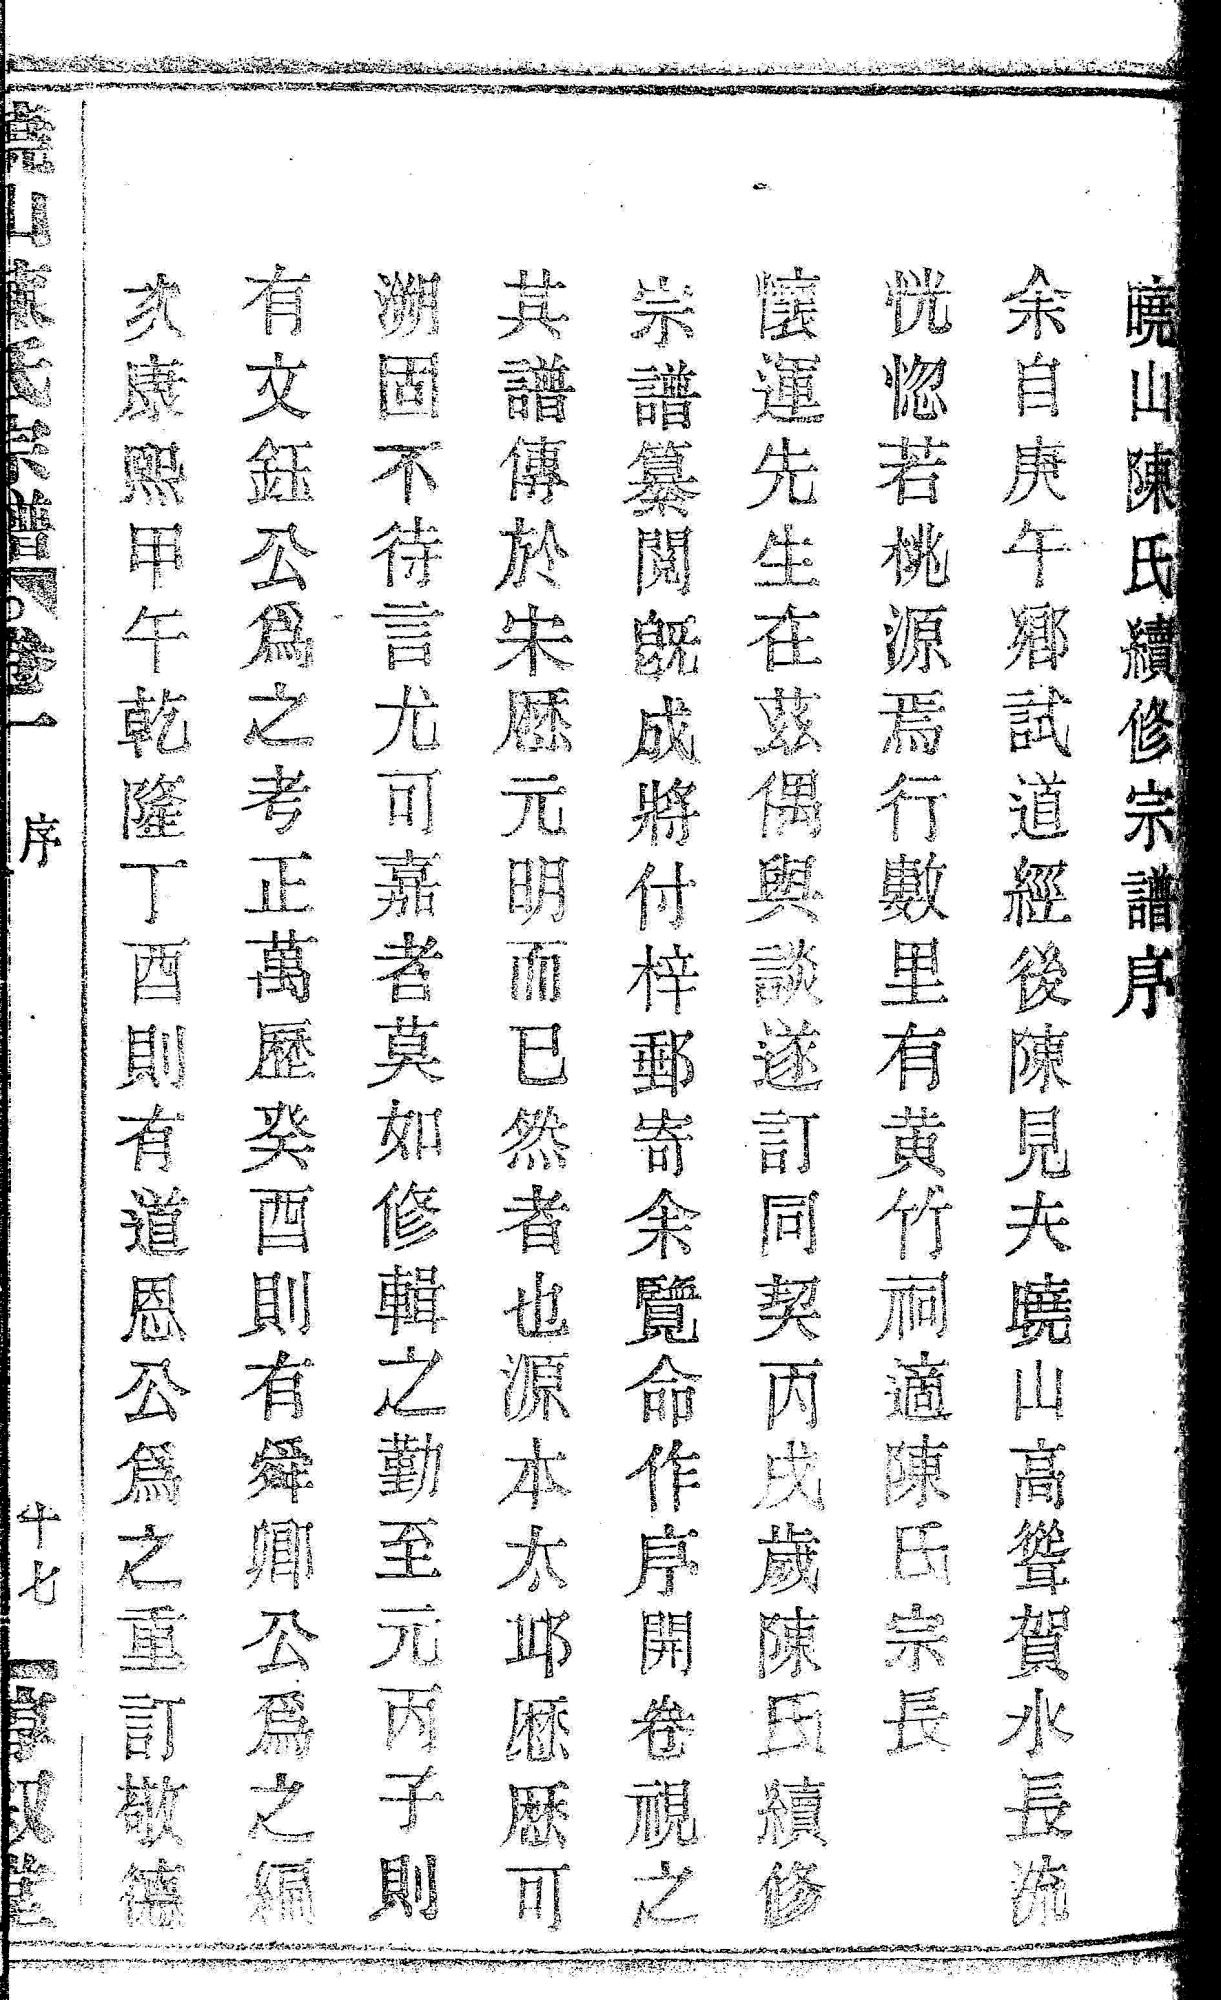 曉山陳氏續修宗譜序
余自庚午鄉試道經後陳見夫曉山高聳賀水長流
恍惚若桃源焉行數里有黃竹祠適陳氏宗長
懷運先生在茲偶與談遂訂同契丙戌歲陳氏續修
宗譜纂閱既成將付梓郵寄余覽命作序開卷視之
其譜傳於宋歷元明而已然者也源本太邱歷歷可
溯固不待言尤可嘉者莫如修輯之勤至元丙子則
有文鈺公爲之考正萬歷癸酉則有舜卿公爲之編
次康熙甲午乾隆丁酉則有道恩公爲之重訂敬德
曉山陳氏宗譜 卷一 序 十七 敘堂